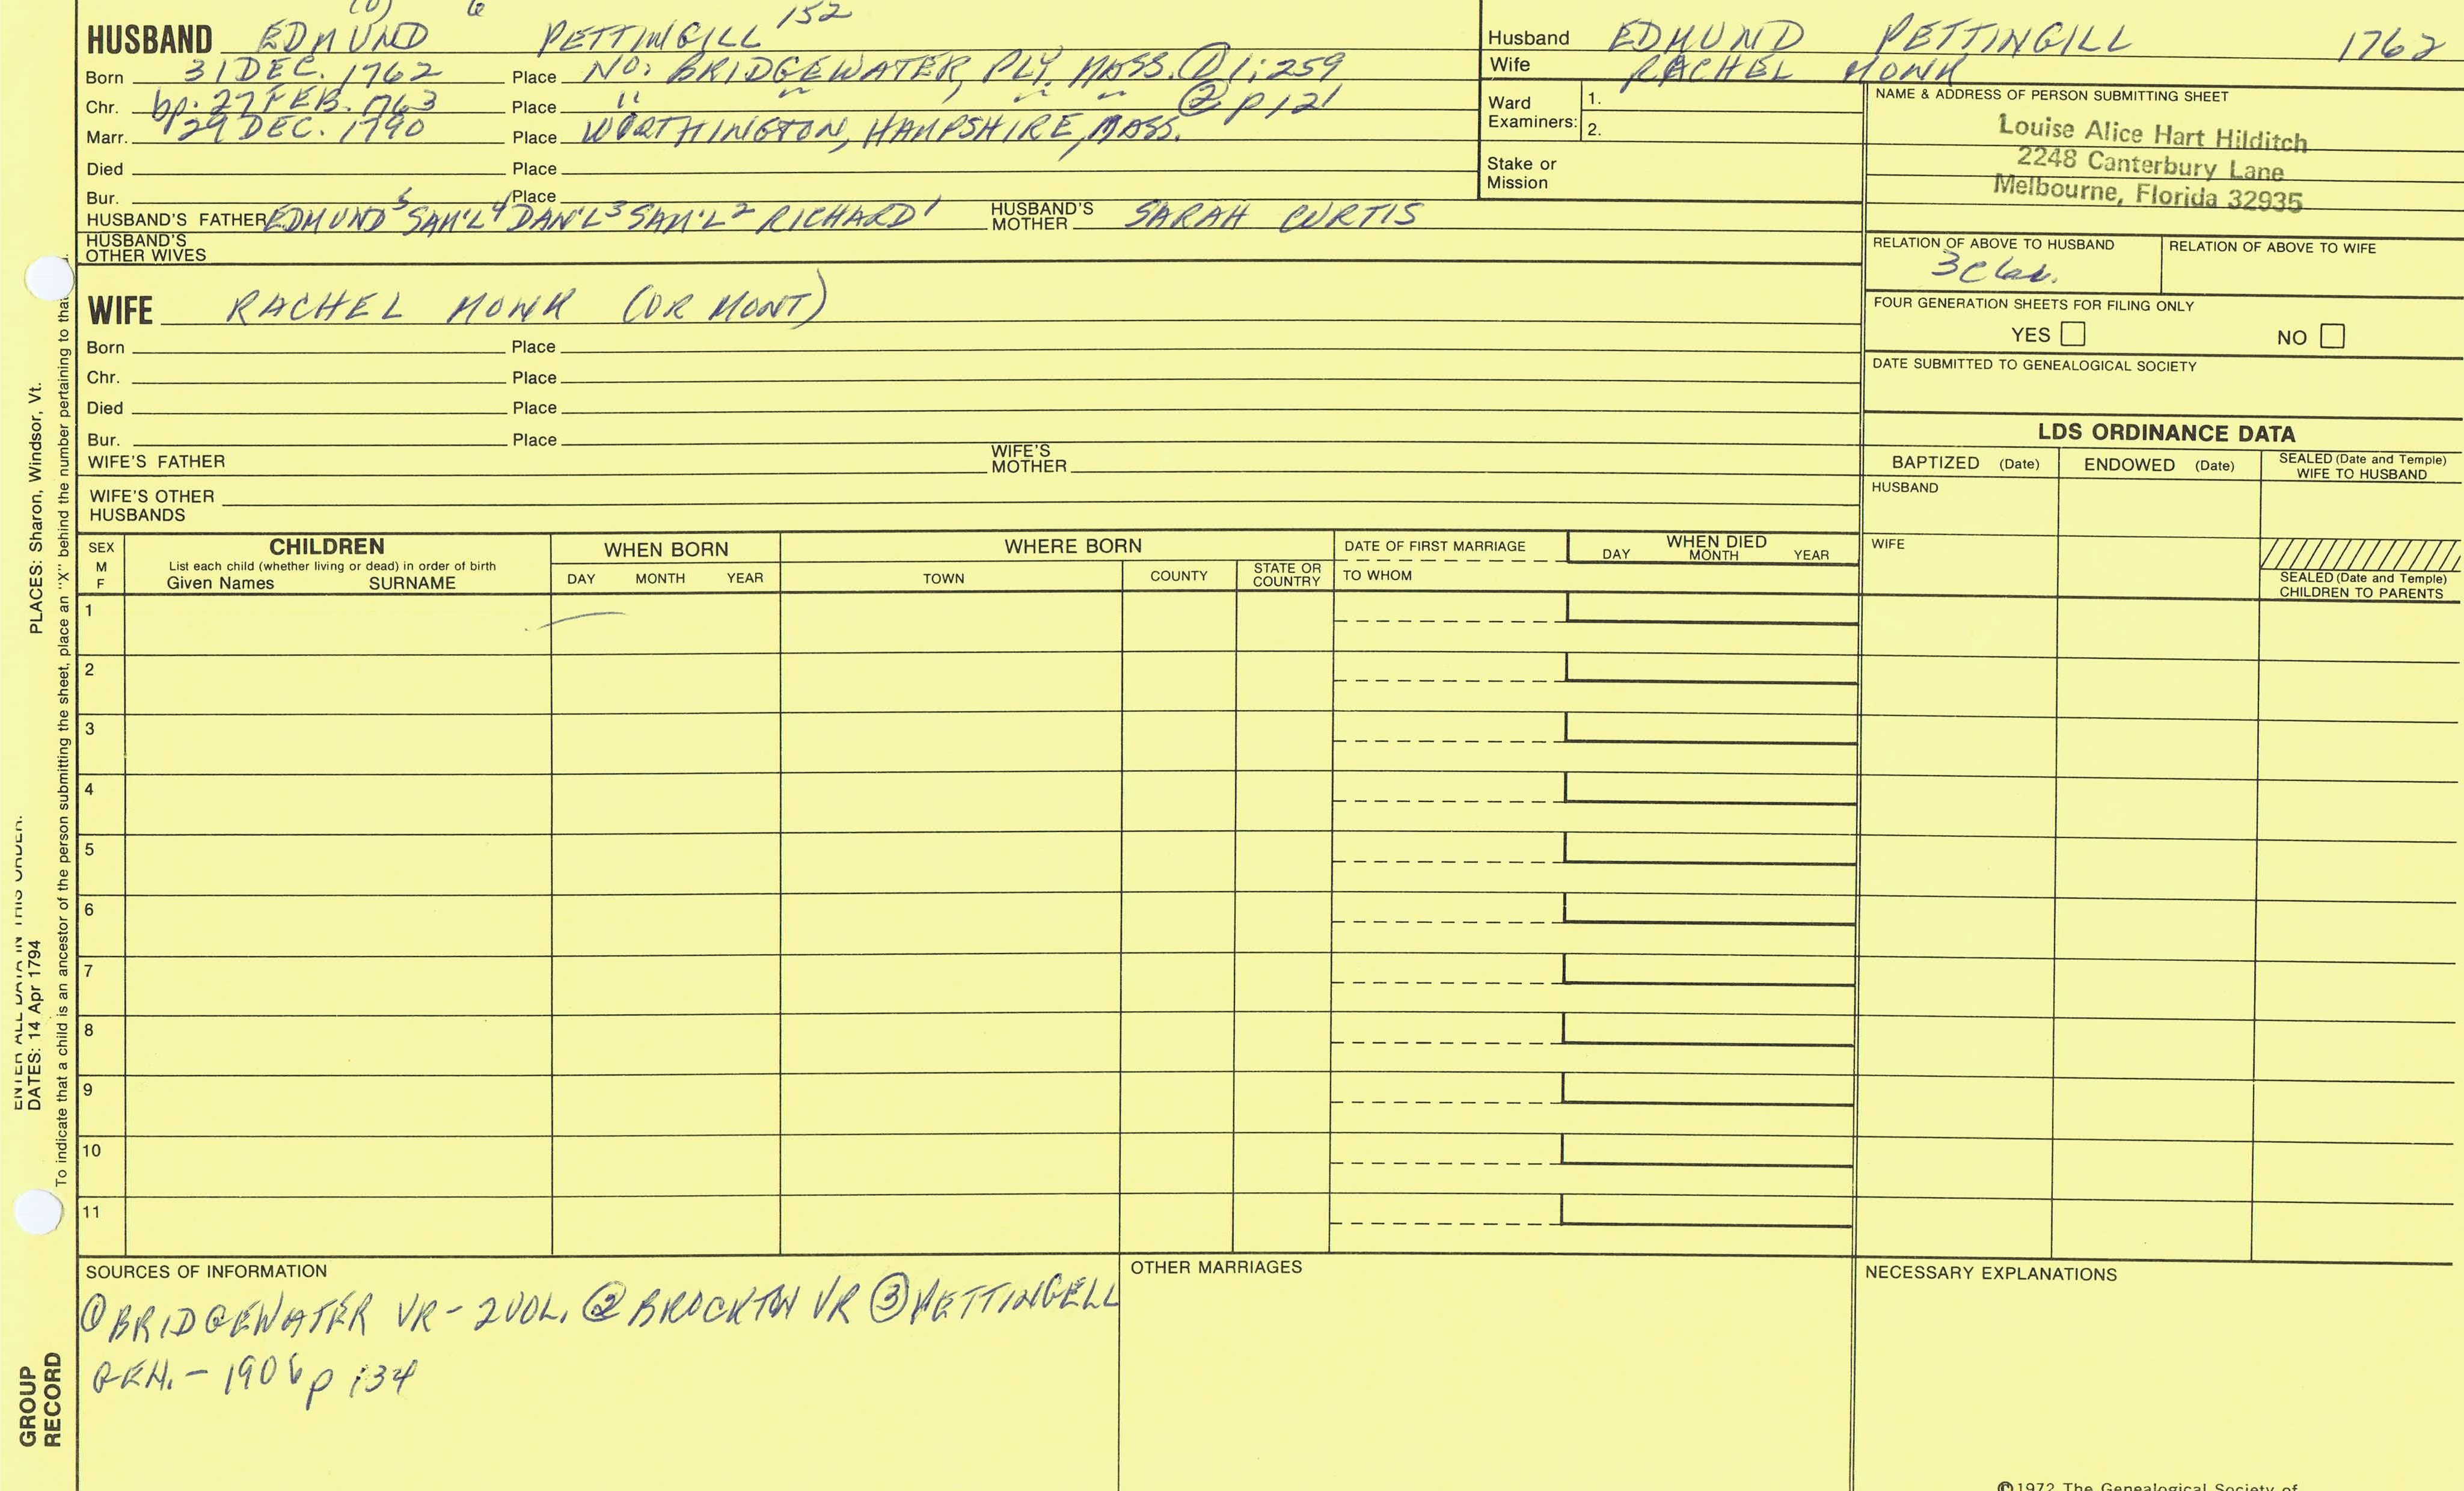 (0) 6
HUSBAND EDMUND PETTINGILL 152
Born 31 DEC. 1762 Place NO. BRIDGEWATER, PLY. MASS. ① 1:259
Chr. bp. 27 FEB. 1763 Place " " " " ② p 121
Marr. 29 DEC. 1790 Place WORTHINGTON, HAMPSHIRE, MASS.
Died Place
Bur. Place
HUSBAND'S FATHER EDMUND⁵ SAM'L⁴ DAN'L³ SAM'L² RICHARD¹ HUSBAND'S MOTHER SARAH CURTIS
HUSBAND'S OTHER WIVES
WIFE RACHEL MONK (OR MONT)
Born Place
Chr. Place
Died Place
Bur. Place
WIFE'S FATHER WIFE'S MOTHER
WIFE'S OTHER HUSBANDS
Husband EDMUND PETTINGILL 1762
Wife RACHEL MONK
Ward Examiners: 1.
2.
Stake or Mission
NAME & ADDRESS OF PERSON SUBMITTING SHEET
Louise Alice Hart Hilditch
2248 Canterbury Lane
Melbourne, Florida 32935
RELATION OF ABOVE TO HUSBAND RELATION OF ABOVE TO WIFE
FOUR GENERATION SHEETS FOR FILING ONLY
YES NO
DATE SUBMITTED TO GENEALOGICAL SOCIETY
LDS ORDINANCE DATA
BAPTIZED (Date) ENDOWED (Date) SEALED (Date and Temple) WIFE TO HUSBAND
HUSBAND
WIFE
SEALED (Date and Temple) CHILDREN TO PARENTS
SEX M F
CHILDREN
List each child (whether living or dead) in order of birth
Given Names SURNAME
WHEN BORN
DAY MONTH YEAR
WHERE BORN
TOWN COUNTY STATE OR COUNTRY
DATE OF FIRST MARRIAGE
TO WHOM
WHEN DIED
DAY MONTH YEAR
1
2
3
4
5
6
7
8
9
10
11
SOURCES OF INFORMATION
① BRIDGEWATER VR - 2 VOL. ② BROCKTON VR ③ PETTINGELL
GEN. - 1906 p 134
OTHER MARRIAGES
NECESSARY EXPLANATIONS
©1972 The Genealogical Society of
ENTER ALL DATA IN THIS ORDER:
DATES: 14 Apr 1794 PLACES: Sharon, Windsor, Vt.
To indicate that a child is an ancestor of the person submitting the sheet, place an "X" behind the number pertaining to that
GROUP RECORD